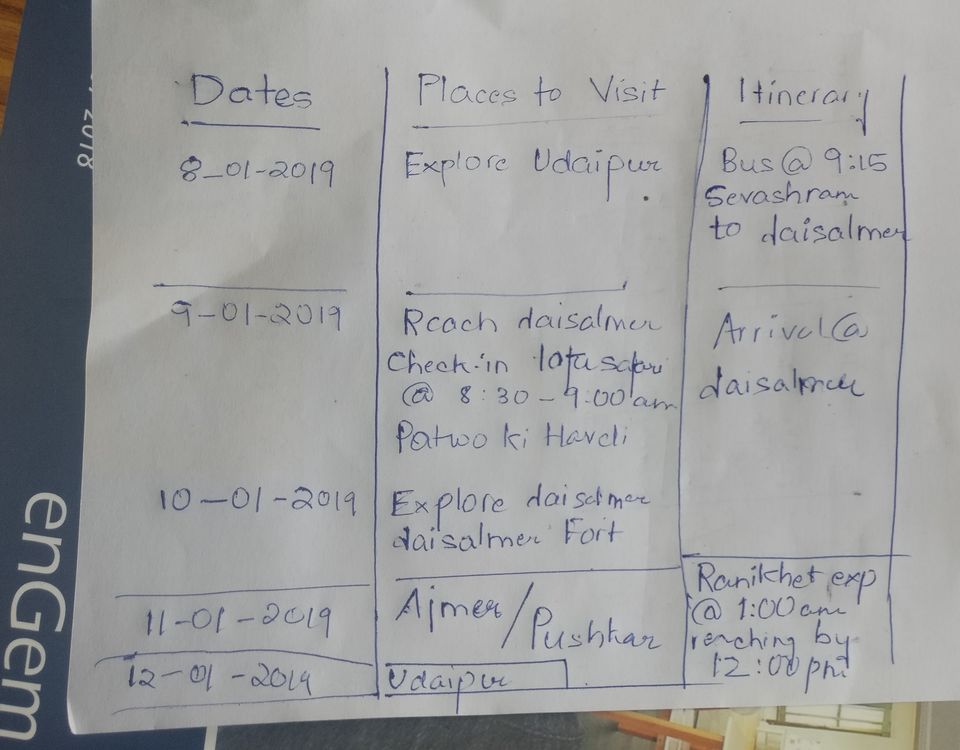 Dates Places to Visit Itinerary
8-01-2019 Explore Udaipur Bus @ 9:15
Sevashram
to daisalmer
9-01-2019 Reach daisalmer Arrival @
Check-in @ 8:30 - 9:00 am daisalmer
Patwo ki Haveli
10-01-2019 Explore daisalmer
daisalmer Fort
11-01-2019 Ajmer/Pushkar Ranikhet exp
@ 1:00 am
reaching by
12:00 pm
12-01-2019 Udaipur
enGem
2018